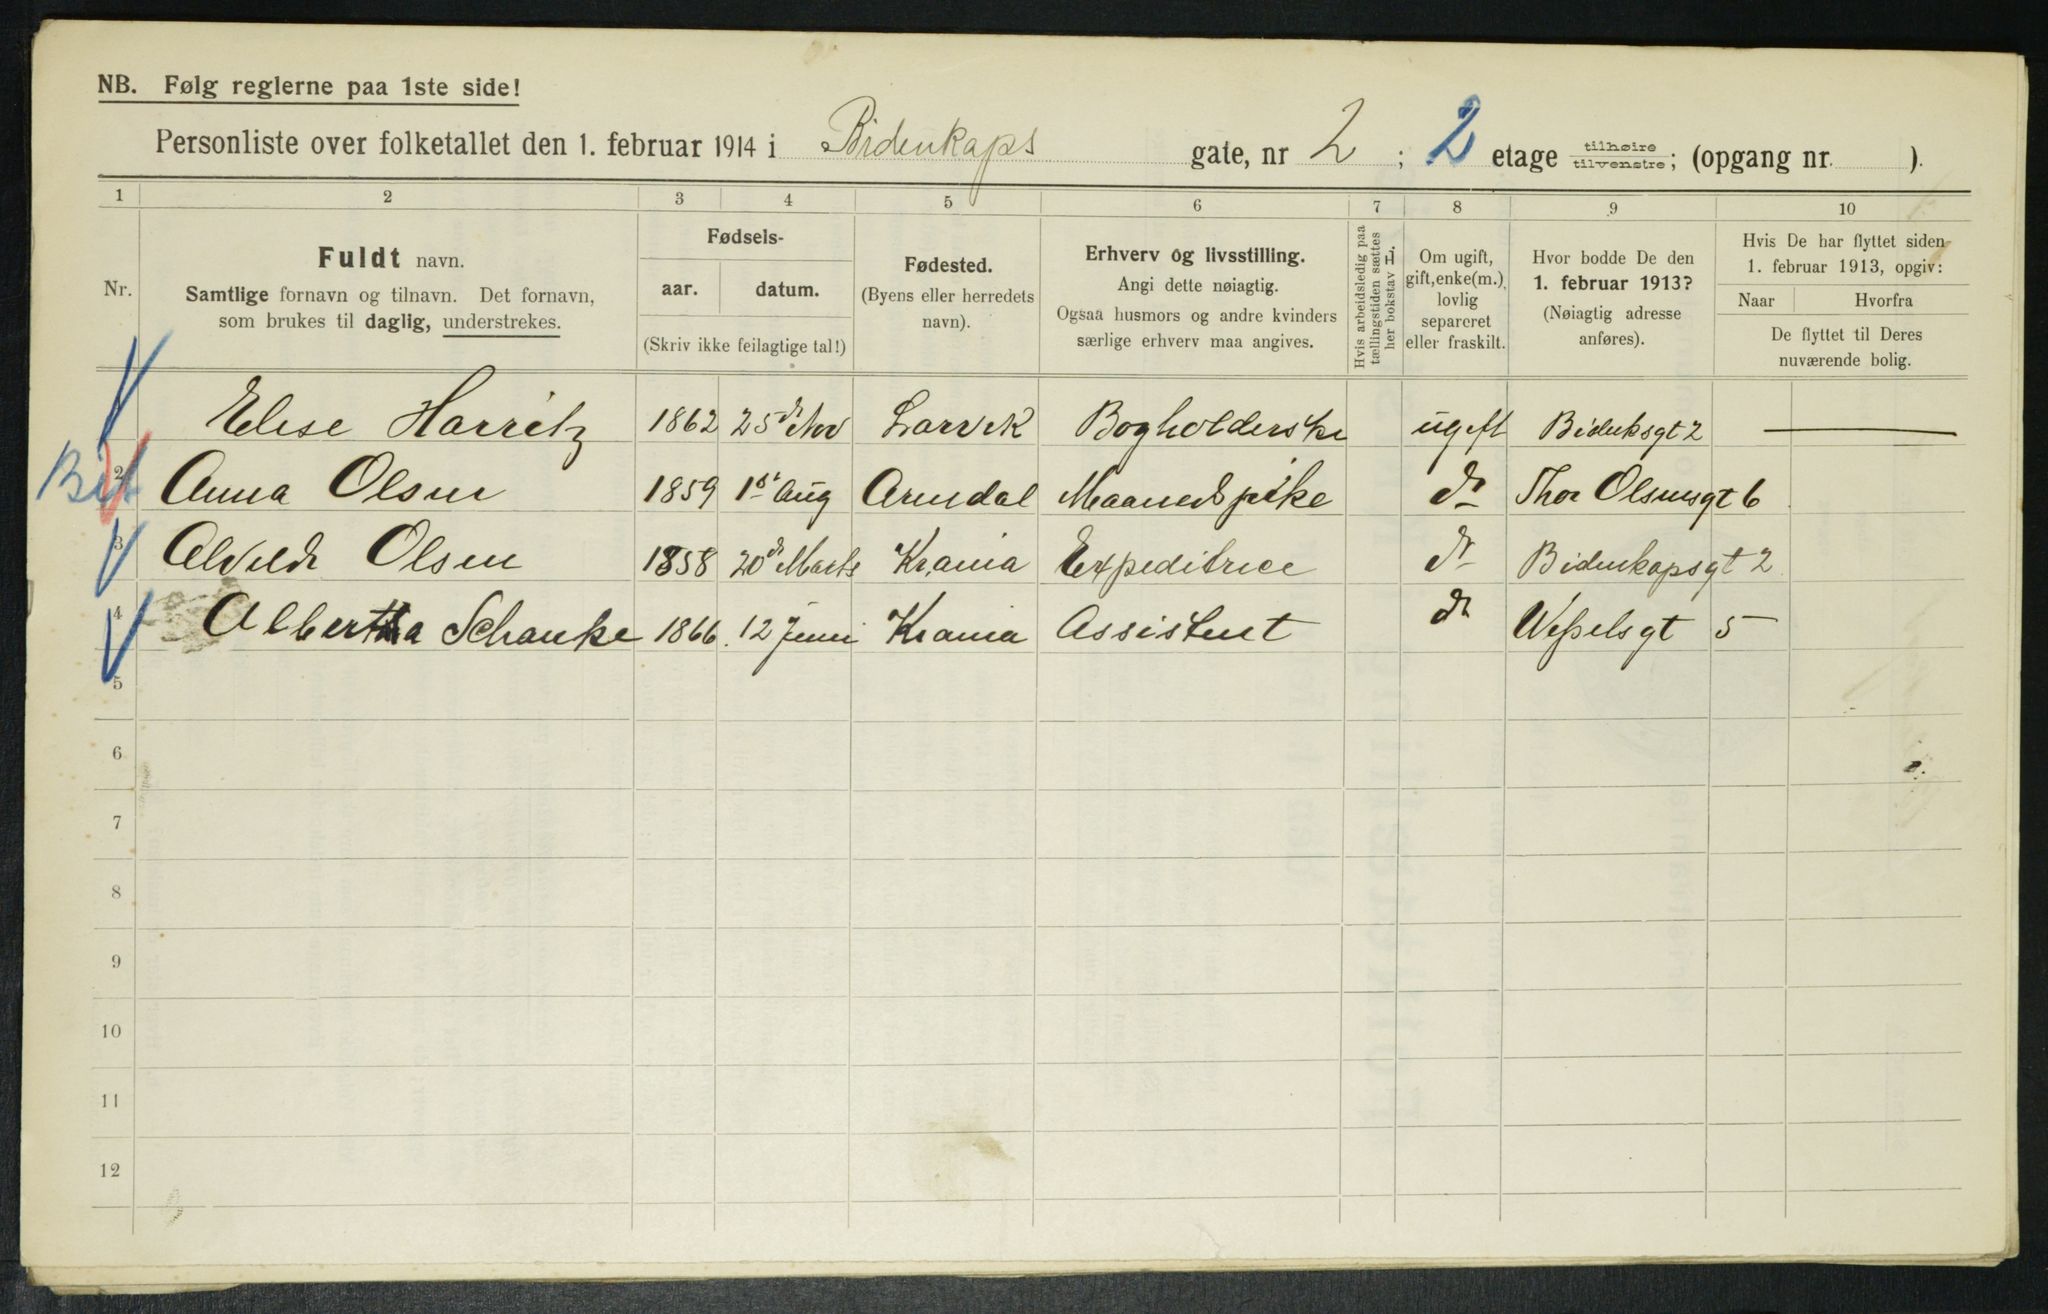 NB. Følg reglerne paa 1ste side!
Personliste over folketallet den 1. februar 1914 i Bidenkaps gate, nr 2; 2 etage tilhøire tilvenstre; (opgang nr. ).
1 2 3 4 5 6 7 8 9 10
Nr.
Fuldt navn.
Samtlige fornavn og tilnavn. Det fornavn,
som brukes til daglig, understrekes.
Fødsels-
aar. datum.
(Skriv ikke feilagtige tal!)
Fødested.
(Byens eller herredets
navn).
Erhverv og livsstilling.
Angi dette nøiagtig.
Ogsaa husmors og andre kvinders
særlige erhverv maa angives.
Hvis arbeidsledig paa
tællingstiden sættes
her bokstav L.
Om ugift,
gift, enke(m.),
lovlig
separeret
eller fraskilt.
Hvor bodde De den
1. februar 1913?
(Nøiagtig adresse
anføres).
Hvis De har flyttet siden
1. februar 1913, opgiv:
Naar Hvorfra
De flyttet til Deres
nuværende bolig.
Elise Harritz 1862 25d Nov Larvik Bogholderske ugift Bidenksgt 2
Bet 2 Anna Olsen 1859 1ste Aug Arendal Maanedspike do Thor Olsensgt 6
3 Alvilde Olsen 1858 20de Marts Krania Expeditrice do Bidenkapsgt 2
4 Albertha Schanke 1866. 12 Juni Krania Assistent do Wesselsgt 5
5
6
7
8
9
10
11
12